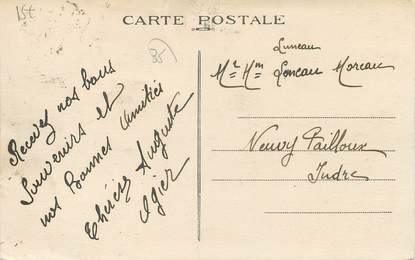 15€
CARTE POSTALE
35
Recevez nos bons
Souvenirs et
nos Bonnes Amitiés
Thérèse Auguste
Ogier
Luneau
Mr Mm Loneau Moreau
Neuvy Pailloux
Indre